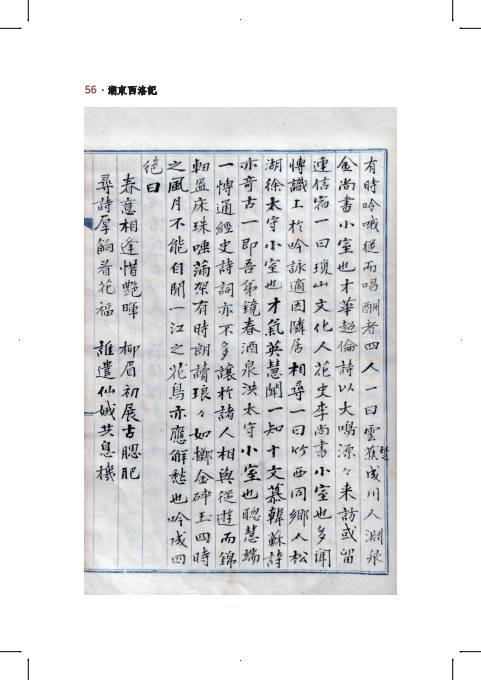 56 · 湖東西洛記
有時吟哦從而唱酬者四人一曰雲楚蕉成川人淵泉
金尚書小室也才華超倫詩以大鳴源々来訪或留
連信宿一曰瓊山文化人花史李尚書小室也多聞
愽識工於吟詠適因隣居相尋一曰竹西同鄉人松
湖徐太守小室也才氣英慧聞一知十文慕韓蘇詩
亦竒古一即吾弟鏡春酒泉洪太守小室也聰慧端
一愽通經史詩詞亦不多讓於諸人相與從遊而錦
軸盈床珠唾滿架有時朗讀琅々如擲金碎玉四時
之風月不能自閒一江之花鳥亦應解愁也吟成四
絕曰
春意相逢惜艶暉 柳眉初展古腮肥
尋詩厚餉看花福 誰遣仙娥共息機